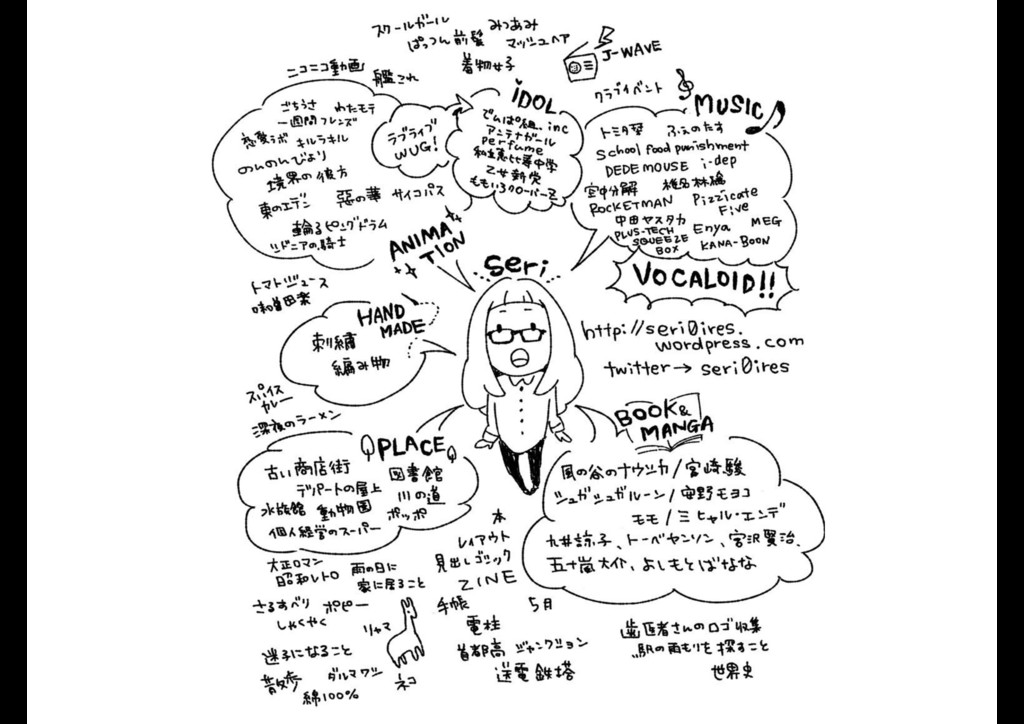 スクールガール みつあみ
ぱっつん前髪 マッシュヘア
着物女子
J-WAVE
ニコニコ動画 艦これ
クラブイベント
ごちうさ わたモテ
一週間フレンズ
恋愛ラボ キルラキル
のんのんびより
境界の彼方
東のエデン 惡の華 サイコパス
輪るピングドラム
シドニアの騎士
ANIMATION
ラブライブ
WUG!
IDOL
でんぱ組.inc
アンテナガール
perfume
私立恵比寿中学
乙女新党
ももいろクローバーZ
MUSIC
トミタ栞 ふぇのたす
School food punishment
DEDE MOUSE i-dep
宮中分解 椎名林檎
ROCKETMAN Pizzicate Five
中田ヤスタカ
PLUS-TECH SQUEEZE BOX
Enya MEG
KANA-BOON
VOCALOID!!
seri
トマトジュース
味噌田楽
HAND MADE
刺繍
編み物
http://seri0ires.
wordpress.com
twitter→ seri0ires
スパイス
カレー
深夜のラーメン
PLACE
古い商店街 図書館
デパートの屋上 川の道
水族館 動物園 ポッポ
個人経営のスーパー
BOOK & MANGA
風の谷のナウシカ/宮崎駿
シュガシュガルーン/安野モヨコ
モモ/ミヒャル・エンデ
九井諒子、トーベヤンソン、宮沢賢治、
五十嵐大介、よしもとばなな
大正ロマン
昭和レトロ
雨の日に
家に居ること
さるすべり ポピー
しゃくやく
リャマ
迷子になること
散歩 ダルマワシ
綿100%
ネコ
本
レイアウト
見出しゴシック
ZINE
手帳 5月
電柱
首都高 ジャンクション
送電鉄塔
歯医者さんのロゴ収集
駅の雨もりを探すこと
世界史